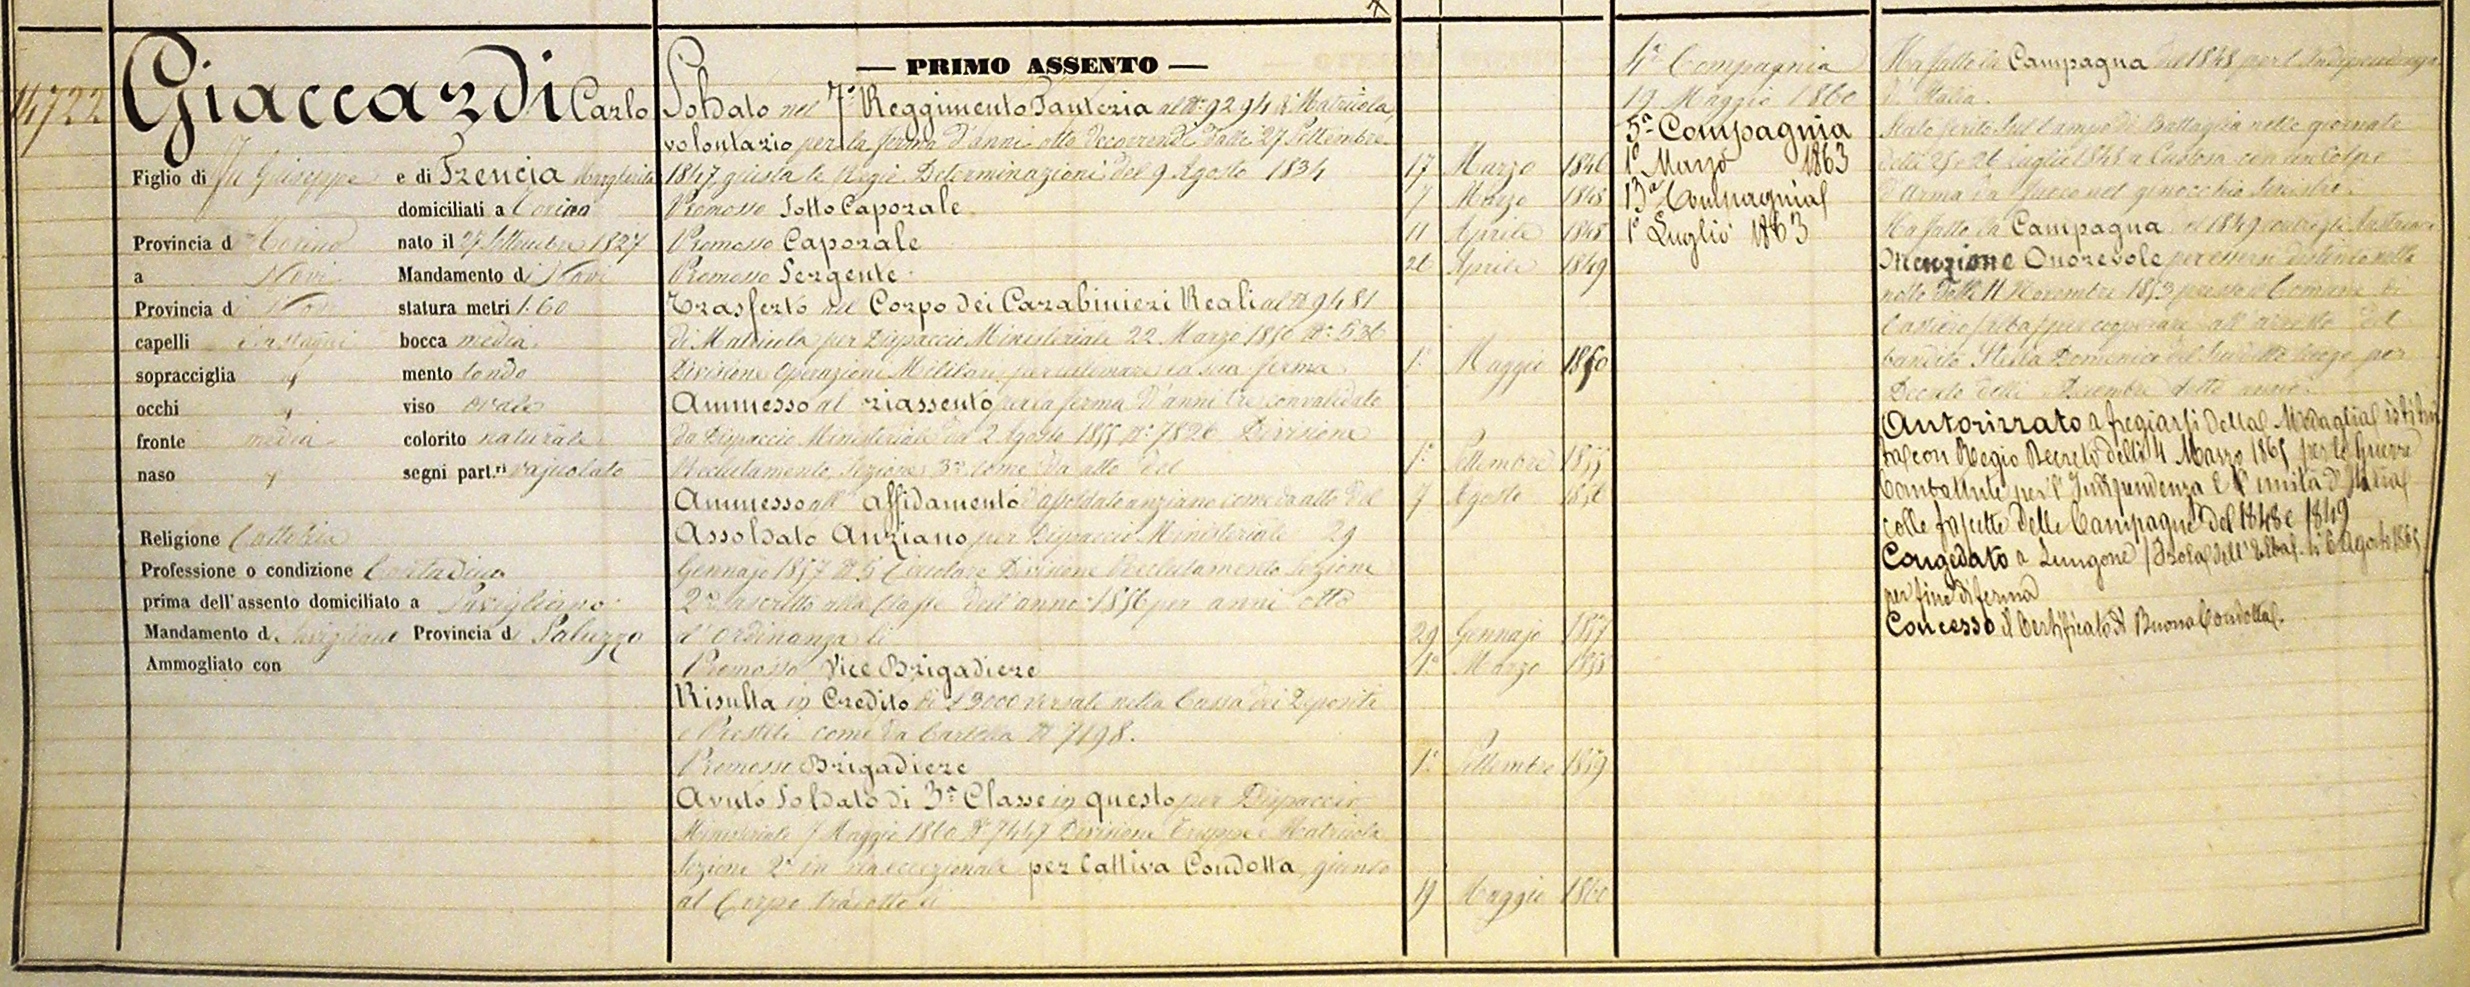 14722
Giaccardi Carlo
Figlio di fu Giuseppe e di Frencia Margherita
domiciliati a Torino
Provincia di Torino nato il 27 Settembre 1827
a Novi Mandamento di Novi
Provincia di Novi statura metri 1.60
capelli castagni bocca media
sopracciglia " mento tondo
occhi " viso ovale
fronte media colorito naturale
naso " segni part.ri vajuolato
Religione Cattolica
Professione o condizione Contadino
prima dell'assento domiciliato a Savigliano
Mandamento di Savigliano Provincia di Saluzzo
Ammogliato con
— PRIMO ASSENTO —
Soldato nel 7° Reggimento Fanteria al N° 9294 di Matricola,
volontario per la ferma d'anni otto decorrendi dalli 27 Settembre
1847, giusta le Regie Determinazioni del 9 Agosto 1834 17 Marzo 1846
Promosso Sotto Caporale 7 Marzo 1848
Promosso Caporale 11 Aprile 1848
Promosso Sergente 26 Aprile 1849
Trasferto nel Corpo dei Carabinieri Reali al N° 9481
di Matricola per Dispaccio Ministeriale 22 Marzo 1850 N° 536
Divisione Operazioni Militari per ultimare la sua ferma 1° Maggio 1850
Ammesso al riassento per la ferma d'anni tre convalidato
da Dispaccio Ministeriale da 2 Agosto 1855 N° 7826 Divisione
Reclutamento, Sezione 3a come da atto del 1° Settembre 1855
Ammesso all' affidamento d'assoldato anziano come da atto del 7 Agosto 1856
Assoldato Anziano per Dispaccio Ministeriale 29
Gennajo 1857 N° 5 Circolare Divisione Reclutamento Sezione
2a ascritto alla Classe dell'anno 1856 per anni otto
d'ordinanza li 29 Gennajo 1857
Promosso Vice Brigadiere 1° Marzo 1858
Risulta in Credito di £ 3000 versate nella Cassa dei Depositi
e Prestiti come da Cartella N° 7198.
Promosso Brigadiere 1° Settembre 1859
Avuto Soldato di 3a Classe in questo per Dispaccio
Ministeriale 7 Maggio 1860 N° 7447 Divisione Truppa e Matricola
Sezione 2a in via eccezionale per Cattiva Condotta, giunto
al Corpo tradotto li 19 Maggio 1860
4a Compagnia
19 Maggio 1860
5a Compagnia
1° Marzo 1863
13a Compagnia
1° Luglio 1863
Ha fatto la Campagna del 1848 per l'Indipendenza
d'Italia.
Stato ferito sul Campo di Battaglia nelle giornate
delli 25 e 26 Luglio 1848 a Custoza con un Colpo
d'Arma da fuoco nel ginocchio sinistro.
Ha fatto la Campagna del 1849 contro gli Austriaci
Menzione Onorevole per essersi distinto nella
notte delli 11 Novembre 1853 presso il Comune di
per cooperare all'arresto del
bandito Stella Domenico del suddetto luogo per
Decreto delli Dicembre detto anno.
Autorizzato a fregiarsi della Medaglia istitui
ta con Regio Decreto delli 4 Marzo 1865 per le Guerre
Combattute per l'Indipendenza e l'unità d'Italia
colle fascette delle Campagne del 1848 e 1849
Congedato a Lungone / Isola dell'Elba / li 6 Agosto 1865
per fine di ferma
Concesso il Certificato di Buona Condotta.